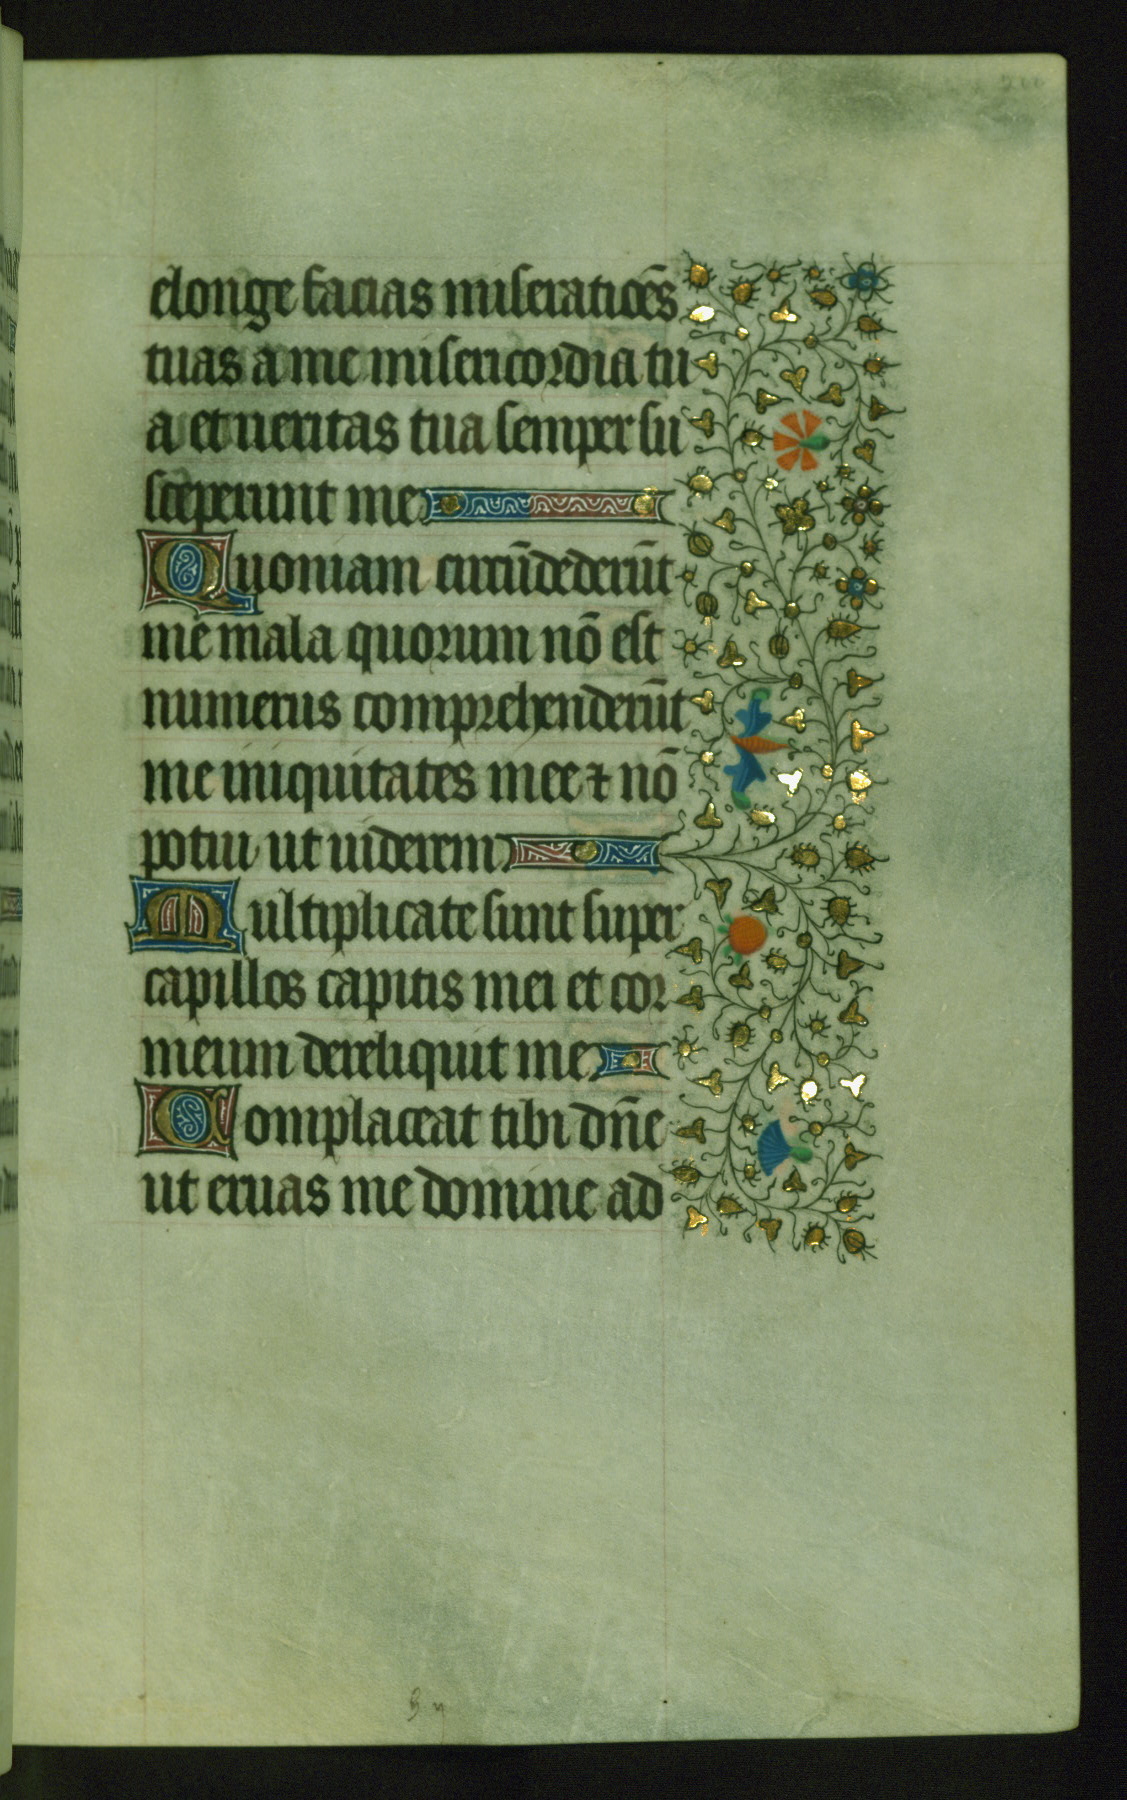 elonge facias miseratiões
tuas a me misericordia tu
a et ueritas tua semper su
sceperunt me
Quoniam circūdederūt
me mala quorum nō est
numerus comprehenderūt
me iniquitates mee ⁊ nō
potui ut uiderem
Multiplicate sunt super
capillos capitis mei et cor
meum dereliquit me
Complaceat tibi dn̄e
ut eruas me domine ad